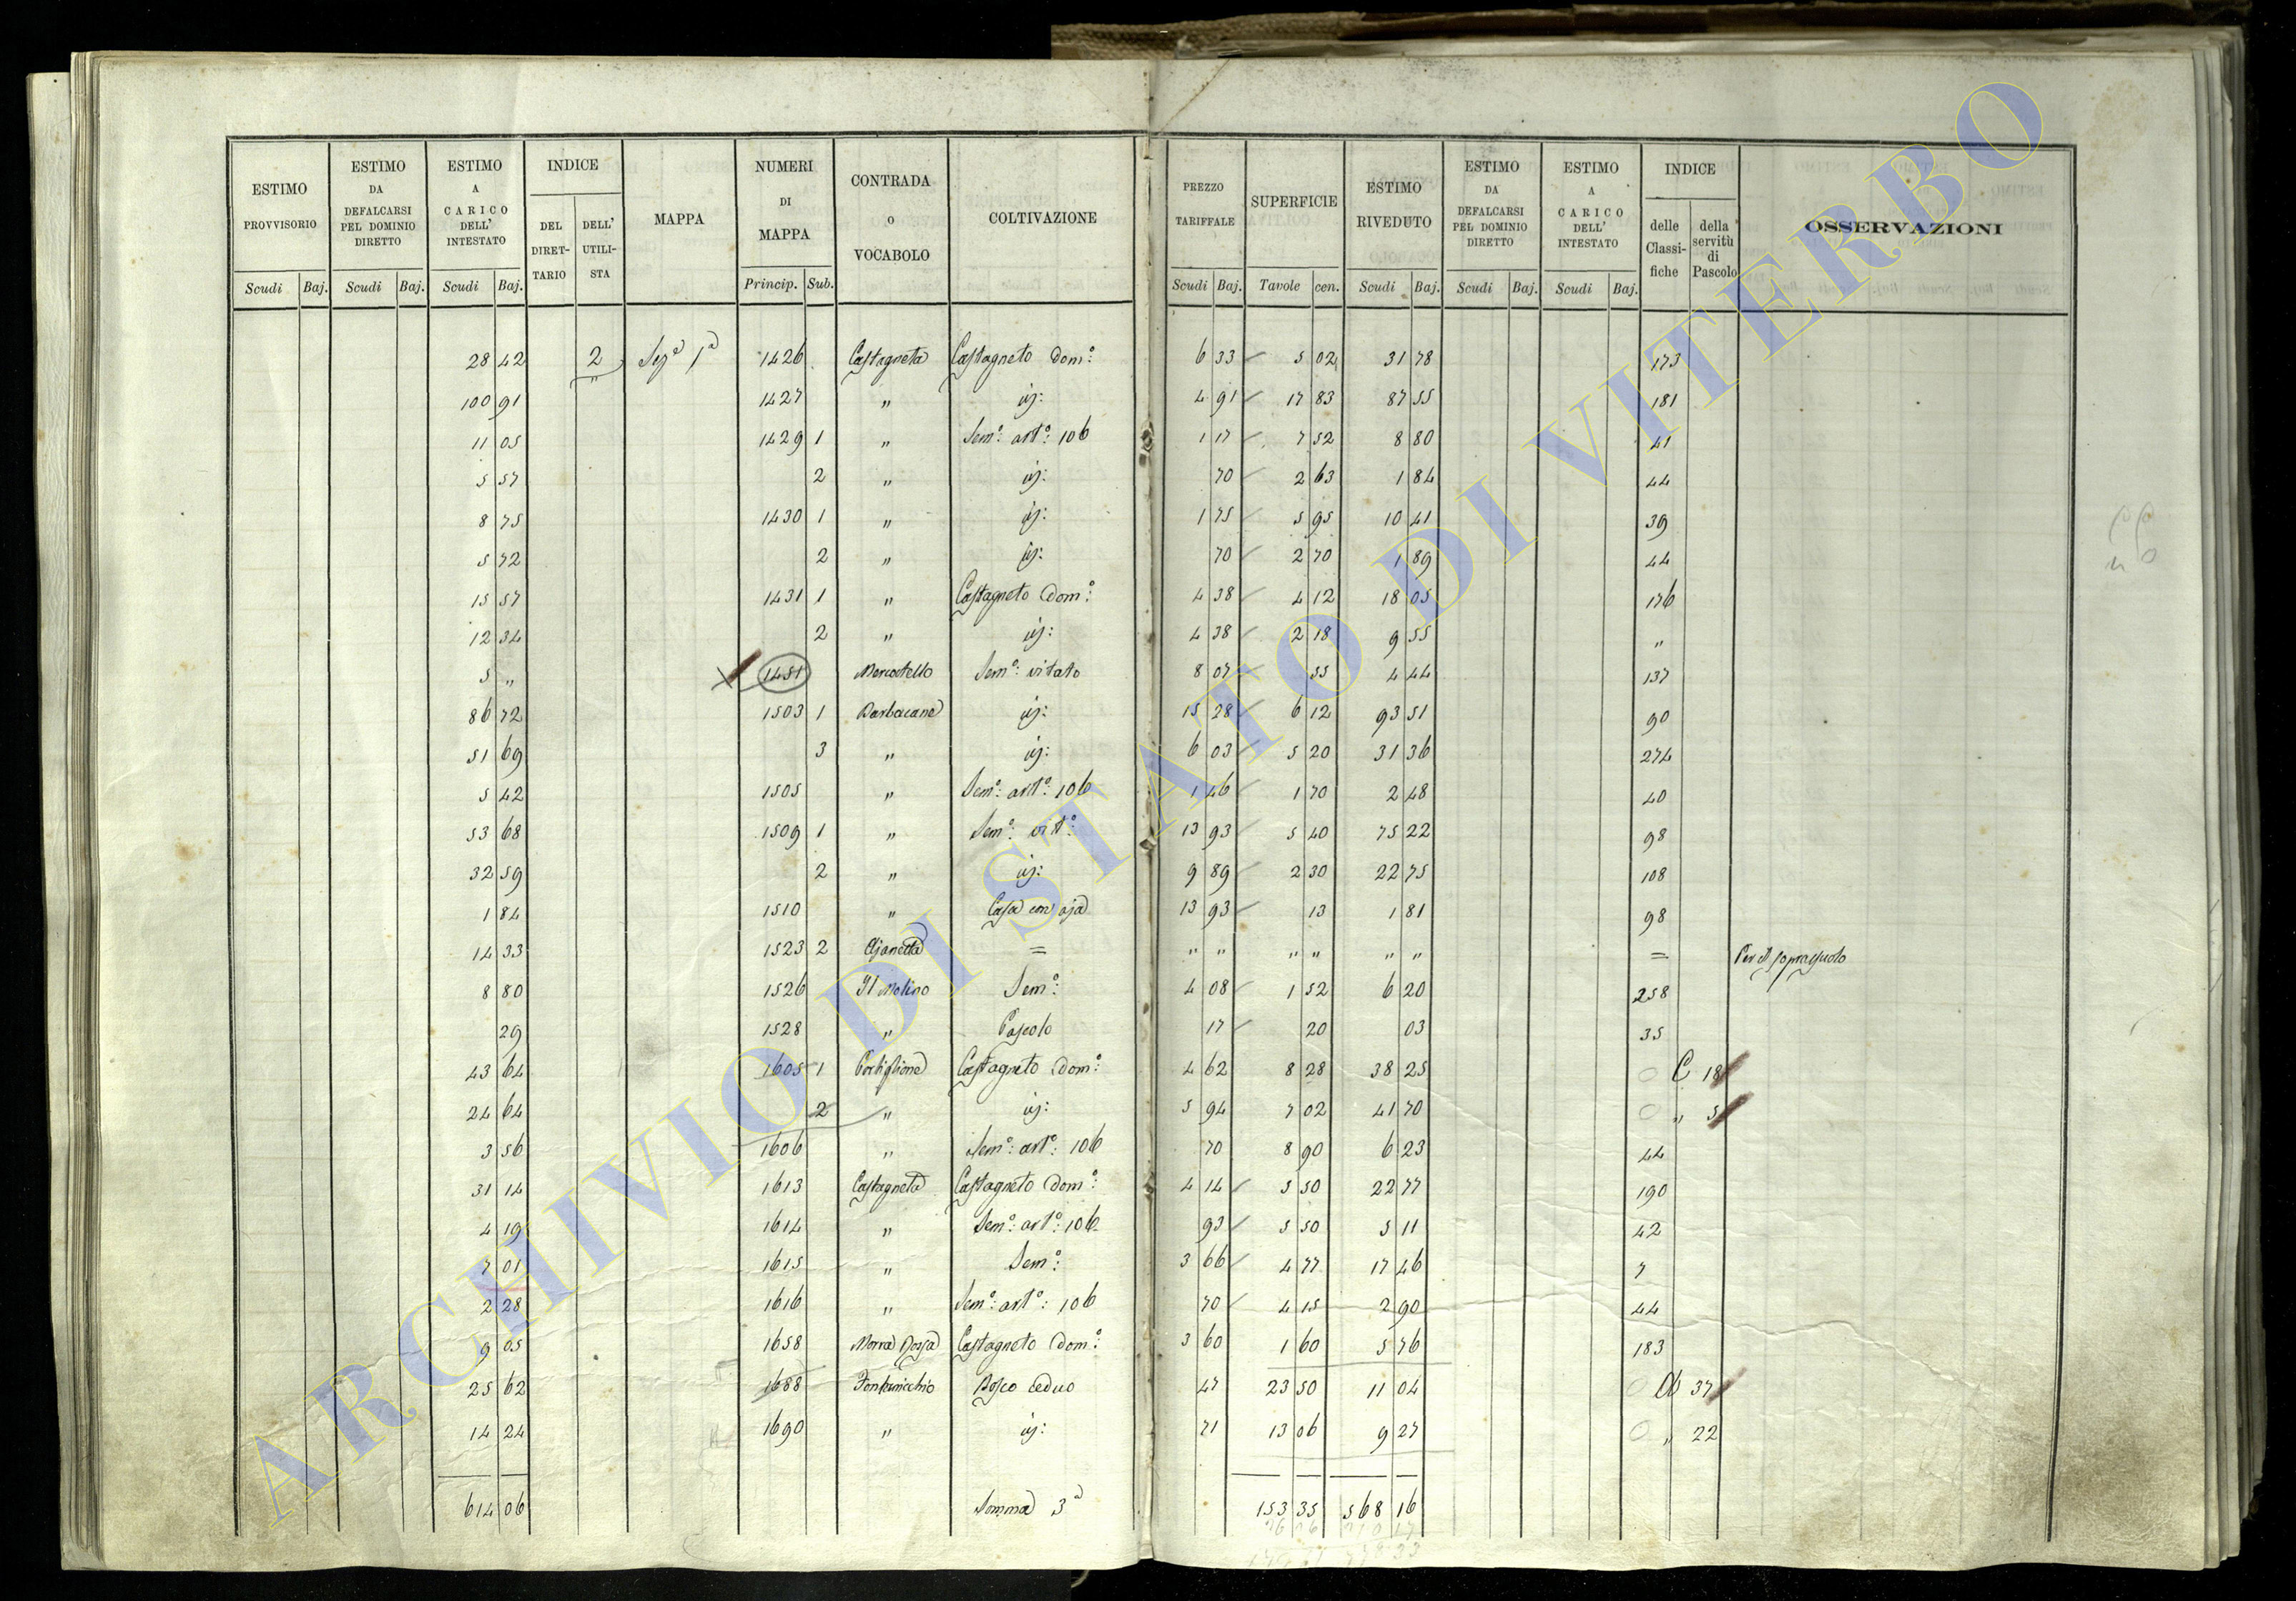 ESTIMO PROVVISORIO | ESTIMO DA DEFALCARSI PEL DOMINIO DIRETTO | ESTIMO A CARICO DELL' INTESTATO | INDICE | MAPPA | NUMERI DI MAPPA | CONTRADA o VOCABOLO | COLTIVAZIONE | PREZZO TARIFFALE | SUPERFICIE | ESTIMO RIVEDUTO | ESTIMO DA DEFALCARSI PEL DOMINIO DIRETTO | ESTIMO A CARICO DELL' INTESTATO | INDICE | OSSERVAZIONI
DEL DIRET-TARIO | DELL' UTILI-STA | delle Classi-fiche | della servitù di Pascolo
Scudi | Baj. | Scudi | Baj. | Scudi | Baj. | Princip. | Sub. | Scudi | Baj. | Tavole | cen. | Scudi | Baj. | Scudi | Baj. | Scudi | Baj.
28 42 | 2 | Sezª 1ª | 1426 | Castagneta | Castagneto Domº: | 6 33 | 5 02 | 31 78 | 173
100 91 | " | 1427 | " | id: | 4 91 | 17 83 | 87 55 | 181
11 05 | 1429 1 | " | Semº: artº: 106 | 1 17 | 7 52 | 8 80 | 41
5 57 | 2 | " | id: | 70 | 2 63 | 1 84 | 44
8 75 | 1430 1 | " | id: | 1 75 | 5 95 | 10 41 | 39
5 72 | 2 | " | id: | 70 | 2 70 | 1 89 | 44
15 57 | 1431 1 | " | Castagneto Domº: | 4 38 | 4 12 | 18 05 | 176
12 34 | 2 | " | id: | 4 38 | 2 18 | 9 55 | "
5 " | 1451 | Mercatello | Semº: vitato | 8 07 | 55 | 4 44 | 137
86 72 | 1503 1 | Barbacane | id: | 15 28 | 6 12 | 93 51 | 90
51 69 | 3 | " | id: | 6 03 | 5 20 | 31 36 | 274
5 42 | 1505 | " | Semº: artº: 106 | 1 46 | 1 70 | 2 48 | 40
53 68 | 1509 1 | " | Semº: vitº: | 13 93 | 5 40 | 75 22 | 98
32 59 | 2 | " | id: | 9 89 | 2 30 | 22 75 | 108
1 84 | 1510 | " | Casa con aja | 13 93 | 13 | 1 81 | 98
14 33 | 1523 2 | = | " " | " " | " " | = | Per il soprassuolo
8 80 | 1526 | Il Molino | Semº: | 4 08 | 1 52 | 6 20 | 258
29 | 1528 | " | Pascolo | 17 | 20 | 03 | 35
43 64 | 1605 1 | Castagneto Domº: | 4 62 | 8 28 | 38 25 | C 18
24 64 | 2 | " | id: | 5 94 | 7 02 | 41 70 | " 5
3 56 | 1606 | " | Semº: artº: 106 | 70 | 8 90 | 6 23 | 44
31 14 | 1613 | Castagneta | Castagneto Domº: | 4 14 | 5 50 | 22 77 | 190
4 19 | 1614 | " | Semº: artº: 106 | 93 | 5 50 | 5 11 | 42
7 01 | 1615 | " | Semº: | 3 66 | 4 77 | 17 46 | 7
2 28 | 1616 | " | Semº: artº: 106 | 70 | 4 15 | 2 90 | 44
9 05 | 1658 | Castagneto Domº: | 3 60 | 1 60 | 5 76 | 183
25 62 | 1688 | Bosco ceduo | 47 | 23 50 | 11 04 | 37
14 24 | 1690 | " | id: | 71 | 13 06 | 9 27 | " 22
614 06 | Somma 3ª | 153 35 | 568 16
ARCHIVIO DI STATO DI VITERBO